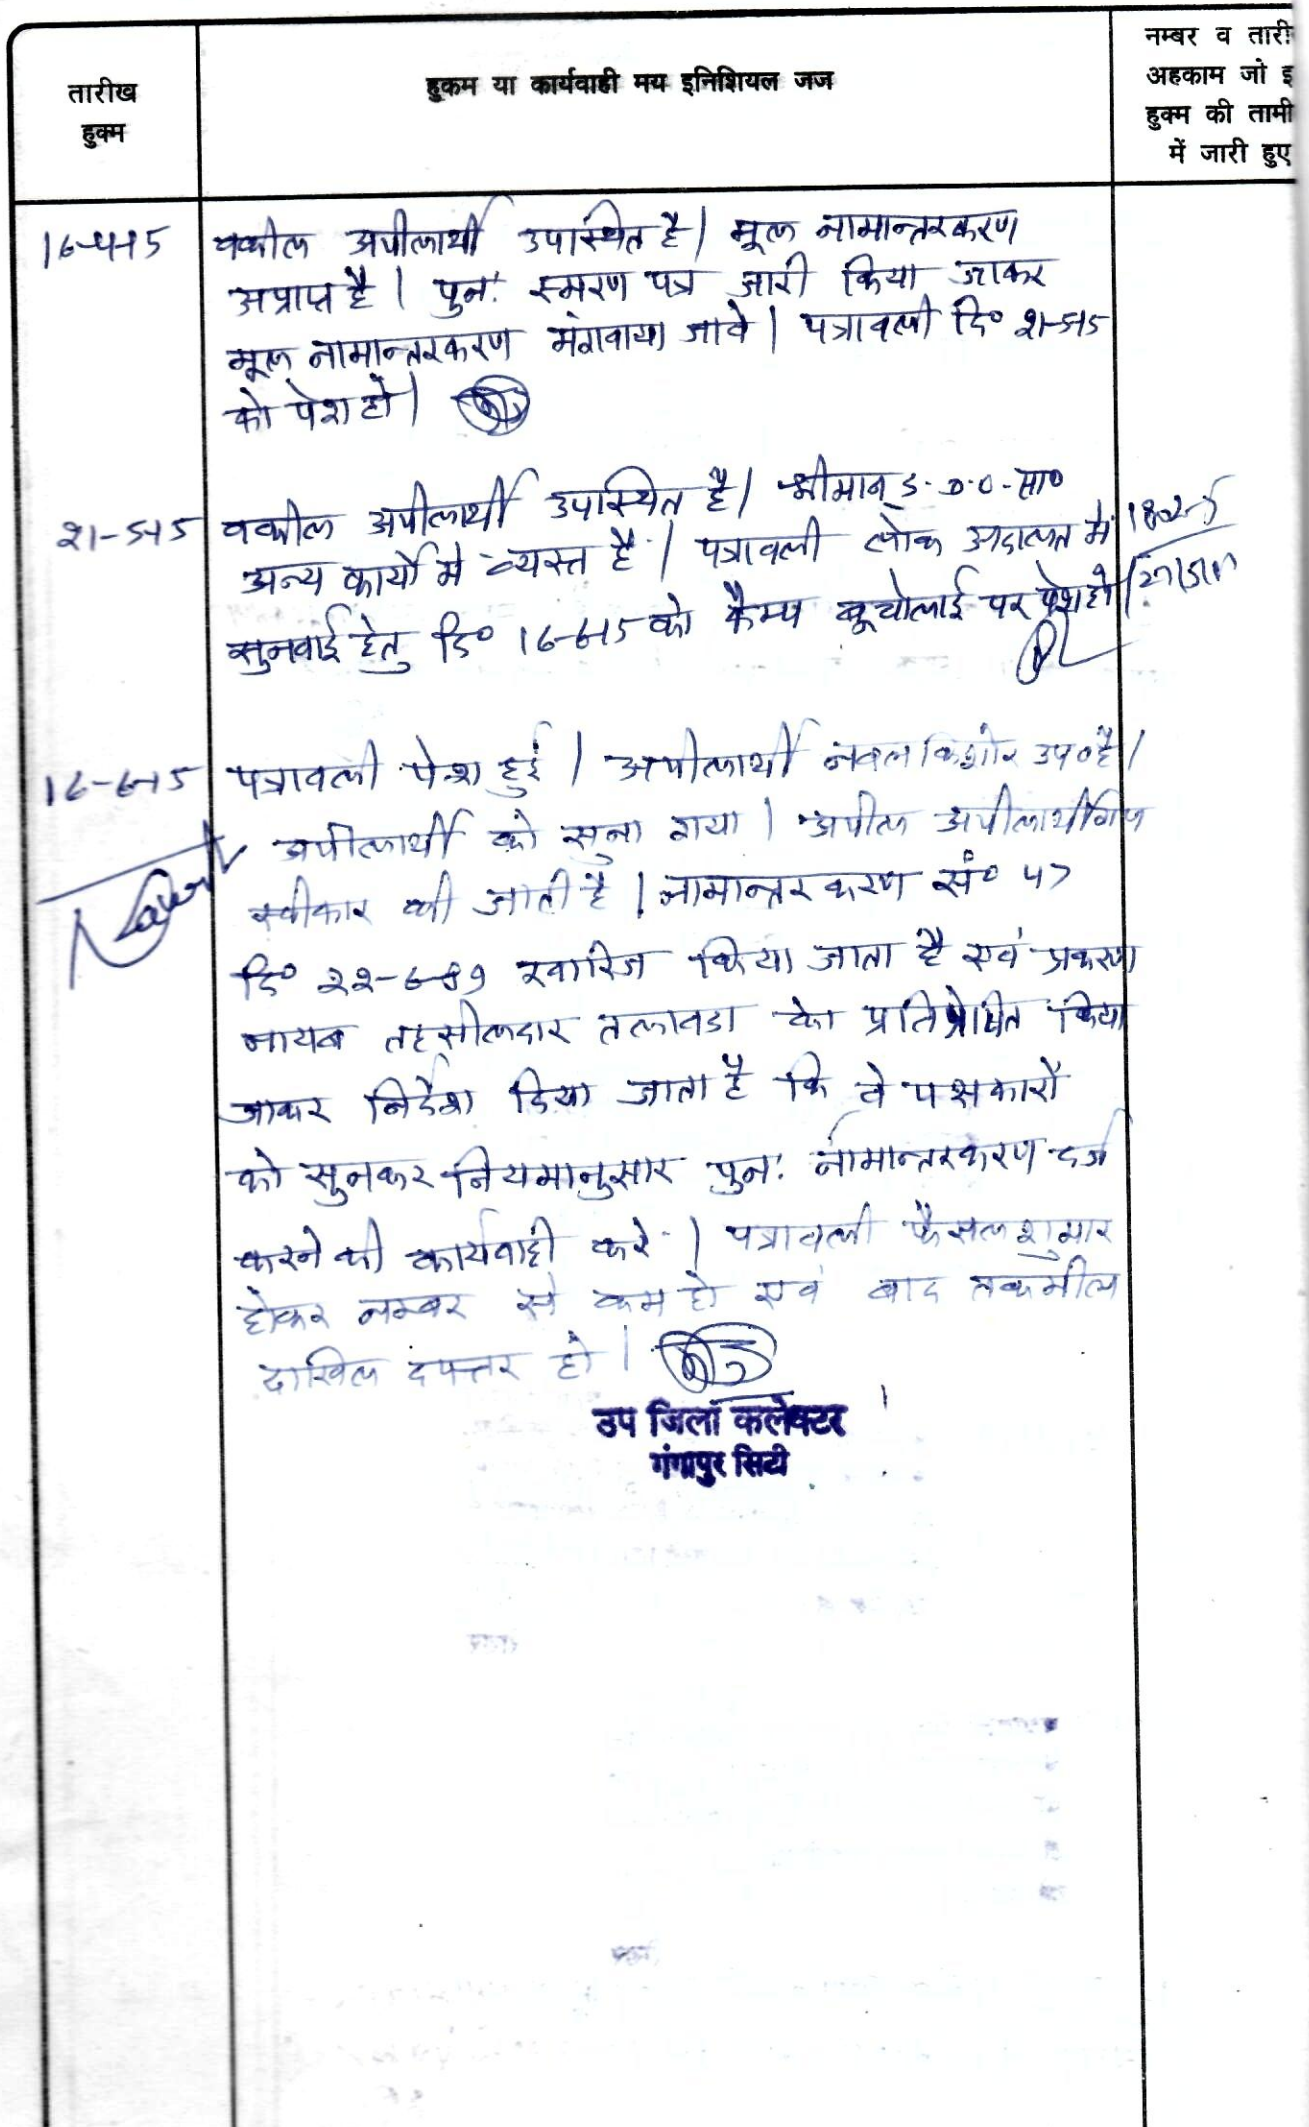 तारीख
हुक्म
हुकम या कार्यवाही मय इनिशियल जज
नम्बर व तारी
अहकाम जो इ
हुक्म की तामी
में जारी हुए
16-4-15 वकील अपीलार्थी उपस्थित है। मूल नामान्तरकरण
अप्राप्त है। पुनः स्मरण पत्र जारी किया जाकर
मूल नामान्तरकरण मंगवाया जावे। पत्रावली दि० 21-5-15
को पेश हो।
21-5-15 वकील अपीलार्थी उपस्थित है। श्रीमान् S.D.O. सा०
अन्य कार्यो मे व्यस्त है। पत्रावली लोक अदालत में
सुनवाई हेतु दि० 16-6-15 को कैम्प कूचोलाई पर पेश हो।
16-6-15 पत्रावली पेश हुई। अपीलार्थी नवल किशोर उप० है।
अपीलार्थी को सुना गया। अपील अपीलार्थीगण
स्वीकार की जाती है। नामान्तरकरण सं० 47
दि० 22-6-89 खारिज किया जाता है एवं प्रकरण
नायब तहसीलदार तलावडा को प्रतिप्रेषित किया
जाकर निर्देश दिया जाता है कि वे पक्षकारों
को सुनकर नियमानुसार पुनः नामान्तरकरण दर्ज
करने की कार्यवाही करे। पत्रावली फैसल शुमार
होकर नम्बर से कम हो एवं बाद तकमील
दाखिल दफ्तर हो।
उप जिला कलेक्टर
गंगापुर सिटी